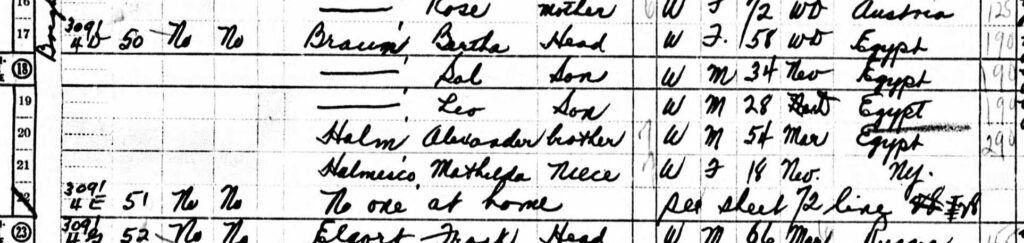 16 —— Rose mother W F 72 WD Austria 125
17 3091 4D 50 No No Braun Bertha Head W F. 58 WD Egypt 190
18 —— Sol Son W M 34 Nev Egypt 190
19 —— Leo Son W M 28 Egypt 190
20 Halm Alexander brother W M 54 Mar Egypt 290
21 Halmisco Mathilda Niece W F 18 Nev. Ny.
22 3091 4E 51 No No No one at home see sheet 72 line
23 3091 52 No No Elgort Frank Head W M 66 Mar Russia